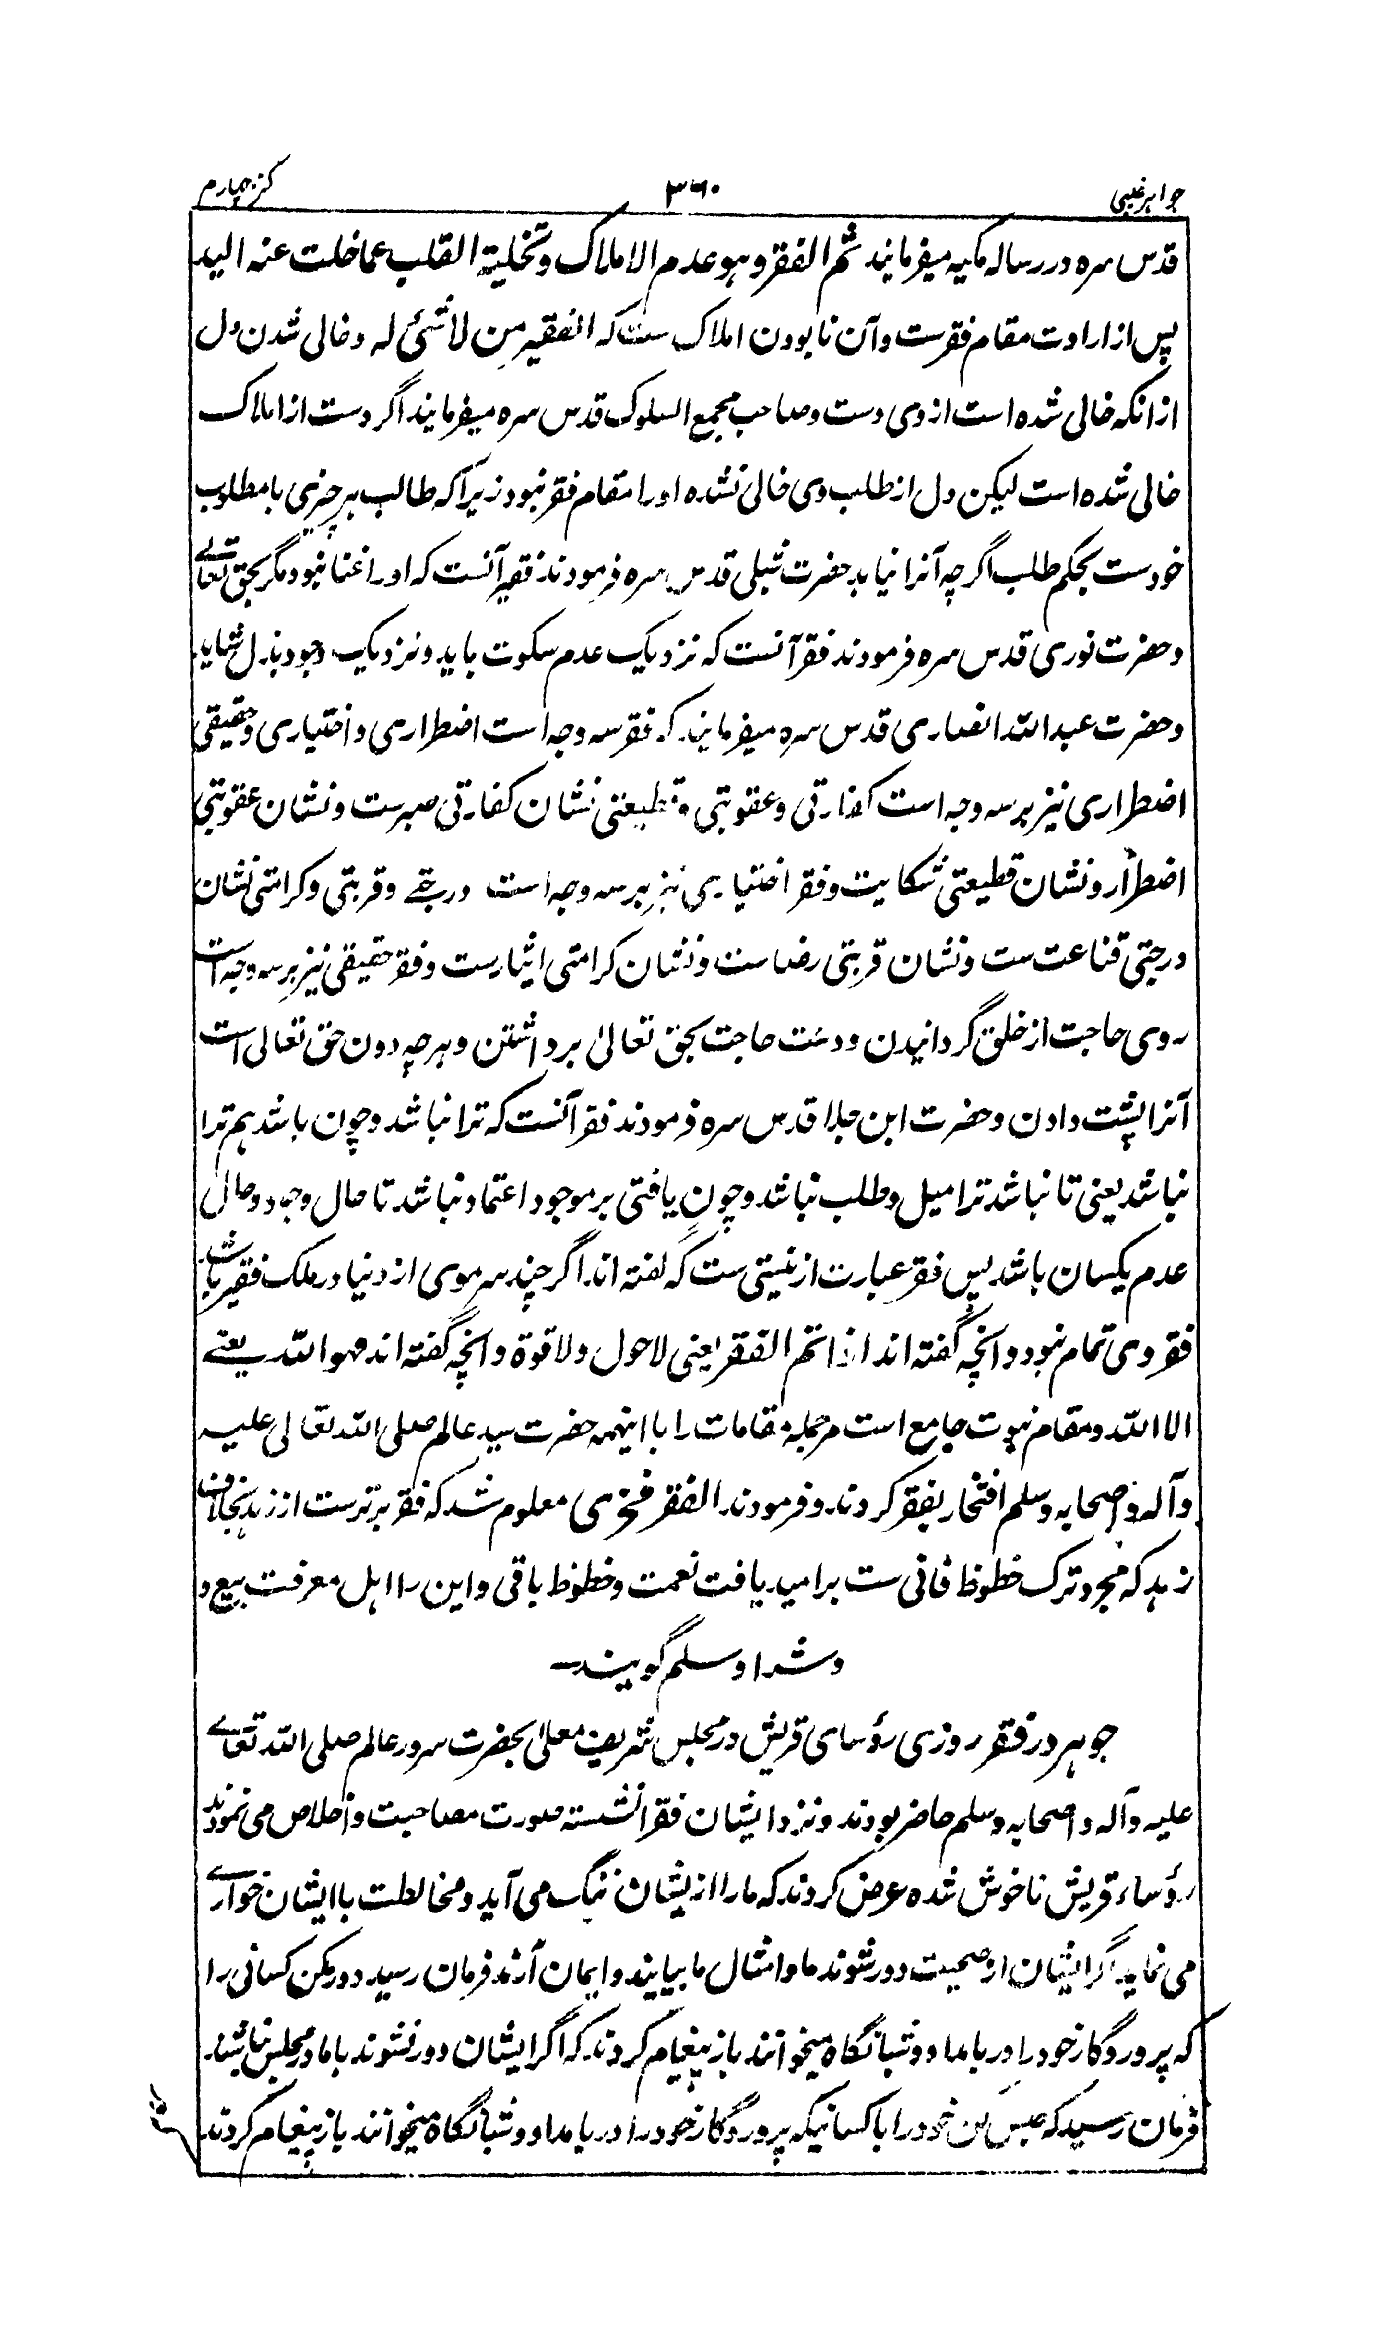 جواهر غیبی ۳۶۰ کنز چهارم
قدس سره در رساله مکیه میفرمایند ثم الفقر و هو عدم الاملاک و تخلیة القلب عما خلت عنه الید
پس از ارادت مقام فقرست و آن نابودن املاک ست که الفقیر من لا شئی له و خالی شدن دل
از انکه خالی شده است از وی دست و صاحب مجمع السلوک قدس سره میفرمایند اگر دست از املاک
خالی شده است لیکن دل از طلب وی خالی نشده او را مقام فقر نبود زیرا که طالب هر چیزی با مطلوب
خودست بحکم طلب اگر چه آنرا نیابد حضرت شبلی قدس سره فرمودند فقیر آنست که او را غنا نبود مگر بحق تعالے
و حضرت نوری قدس سره فرمودند فقر آنست که نزدیک عدم سکوت باید و نزدیک وجود بذل شاید
و حضرت عبد الله انصاری قدس سره میفرمایند که فقر سه وجه است اضطراری و اختیاری و حقیقی
اضطراری نیز بر سه وجه است کفارتی و عقوبتی و قطیعتی نشان کفارتی صبرست و نشان عقوبتی
اضطرار و نشان قطیعتی شکایت و فقر اختیاری نیز بر سه وجه است درجتے و قربتی و کرامتی نشان
درجتی قناعت ست و نشان قربتی رضاست و نشان کرامتی ایثارست و فقر حقیقی نیز بر سه وجه است
روی حاجت از خلق گردانیدن و دست حاجت بحق تعالیٰ برداشتن و هر چه دون حق تعالی است
آنرا پشت دادن و حضرت ابن جلا قدس سره فرمودند فقر آنست که ترا نباشد و چون باشد هم ترا
نباشد یعنی تا نباشد ترا میل و طلب نباشد و چون یافتی بر موجود اعتماد نباشد تا حال وجود و حال
عدم یکسان باشد پس فقر عبارت از نیستی ست که گفته اند اگر چند سر موی از دنیا در ملک فقیر باشد
فقر وی تمام نبود و آنچه گفته اند اذا تم الفقر یعنی لا حول و لا قوة و آنچه گفته اند فهو الله یعنے
الا الله و مقام نبوت جامع است مر جمله مقامات را با اینهمه حضرت سید عالم صلی الله تعالی علیه
و آله و اصحابه وسلم افتخار بفقر کردند و فرمودند الفقر فخری معلوم شد که فقر برترست از زهد بخلاف
زهد که مجرد ترک حظوظ فانی ست بر امید یافت نعمت و حظوظ باقی و این را اهل معرفت بیع و
و شرا و سلم گویند—
جوهر در فقر روزی رؤسای قریش در مجلس شریف معلی بحضرت سرور عالم صلی الله تعالے
علیه و آله و اصحابه وسلم حاضر بودند و نزد ایشان فقرا نشسته صورت مصاحبت و اخلاص می نمودند
رؤساء قریش ناخوش شده عرض کردند که ما را از یشان ننگ می آید و مخالطت با ایشان خوارے
می نماید اگر ایشان از صحبت دور شوند ما و امثال ما بیایند و ایمان آرند فرمان رسید دور مکن کسانی را
که پروردگار خود را در بامداد و شبانگاه میخوانند باز پیغام کردند که اگر ایشان دور نشوند با ما در مجلس نباشند
فرمان رسید که حبس کن خود را با کسانیکه پروردگار خود را در بامداد و شبانگاه میخوانند باز پیغام کردند